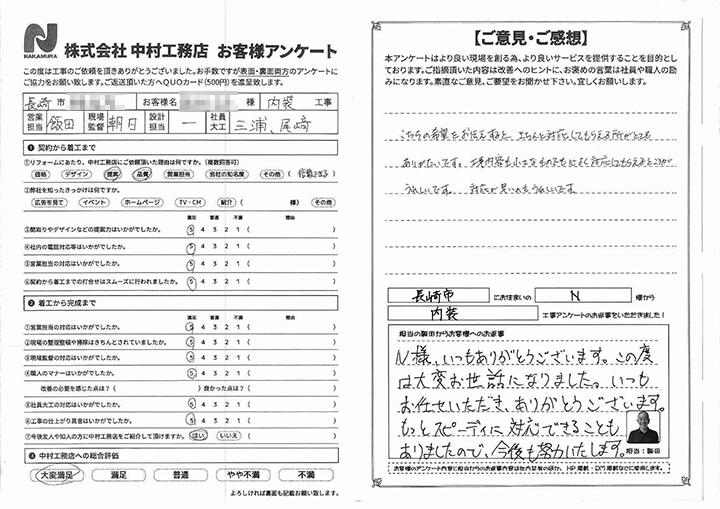 NAKAMURA
株式会社 中村工務店 お客様アンケート
この度は工事のご依頼を頂きありがとうございました。お手数ですが表面・裏面両方のアンケートに
ご協力をお願い致します。ご返送頂いた方へQUOカード(500円)を進呈致します。
長崎 市 お客様名 様 内装 工事
営業担当 飯田 現場監督 朝日 設計担当 ー 社員大工 三浦、尾﨑
❶ 契約から着工まで
①リフォームにあたり、中村工務店にご依頼頂いた理由は何ですか。(複数回答可)
価格 デザイン 提案 品質 営業担当 会社の知名度 その他 ( 信頼できる )
②弊社を知ったきっかけは何ですか。
広告を見て イベント ホームページ TV・CM 紹介 ( 様) その他
満足 普通 不満 理由
③間取りやデザインなどの提案力はいかがでしたか。 5 4 3 2 1 ( )
④社内の電話対応等はいかがでしたか。 5 4 3 2 1 ( )
⑤営業担当の対応はいかがでしたか。 5 4 3 2 1 ( )
⑥契約から着工までの打合せはスムーズに行われましたか。 5 4 3 2 1 ( )
❷ 着工から完成まで
満足 普通 不満 理由
①営業担当の対応はいかがでしたか。 5 4 3 2 1 ( )
②現場の整理整頓や掃除はきちんとされていましたか。 5 4 3 2 1 ( )
③現場監督の対応はいかがでしたか。 5 4 3 2 1 ( )
④職人のマナーはいかがでしたか。 5 4 3 2 1 ( )
改善の必要を感じた点は?( ) 良かった点は?( )
⑤社員大工の対応はいかがでしたか。 5 4 3 2 1 ( )
⑥工事の仕上がり具合はいかがでしたか。 5 4 3 2 1 ( )
⑦今後友人や知人の方に中村工務店をご紹介して頂けますか。 はい いいえ ( )
❸ 中村工務店への総合評価
大変満足 満足 普通 やや不満 不満
よろしければ裏面も記載お願い致します。
【ご意見・ご感想】
本アンケートはより良い現場を創る為、より良いサービスを提供することを目的とし
ております。ご指摘頂いた内容は改善へのヒントに、お褒めの言葉は社員や職人の励
みになります。素直なご意見、ご要望をお聞かせ下さい。宜しくお願い致します。
こちらの希望をお伝えすると、きちんと対応してもらえる所がとても
ありがたいです。 内容も小さなものでもすぐ対応してもらえるところが
うれしいです。 対応が早いのもうれしいです。
長崎市 にお住まいの N 様から
内装 工事アンケートのお返事をいただきました!
担当の製田からお客様へのお返事
N様、いつもありがとうございます。この度
は大変お世話になりました。いつも
お任せいただき、ありがとうございます。
もっとスピーディに対応できることも
ありましたので、今後も努力いたします。
担当:製田
お客様のアンケート内容と担当からのお返事内容は社内共有のほか、HP掲載・DM掲載などに使用します。